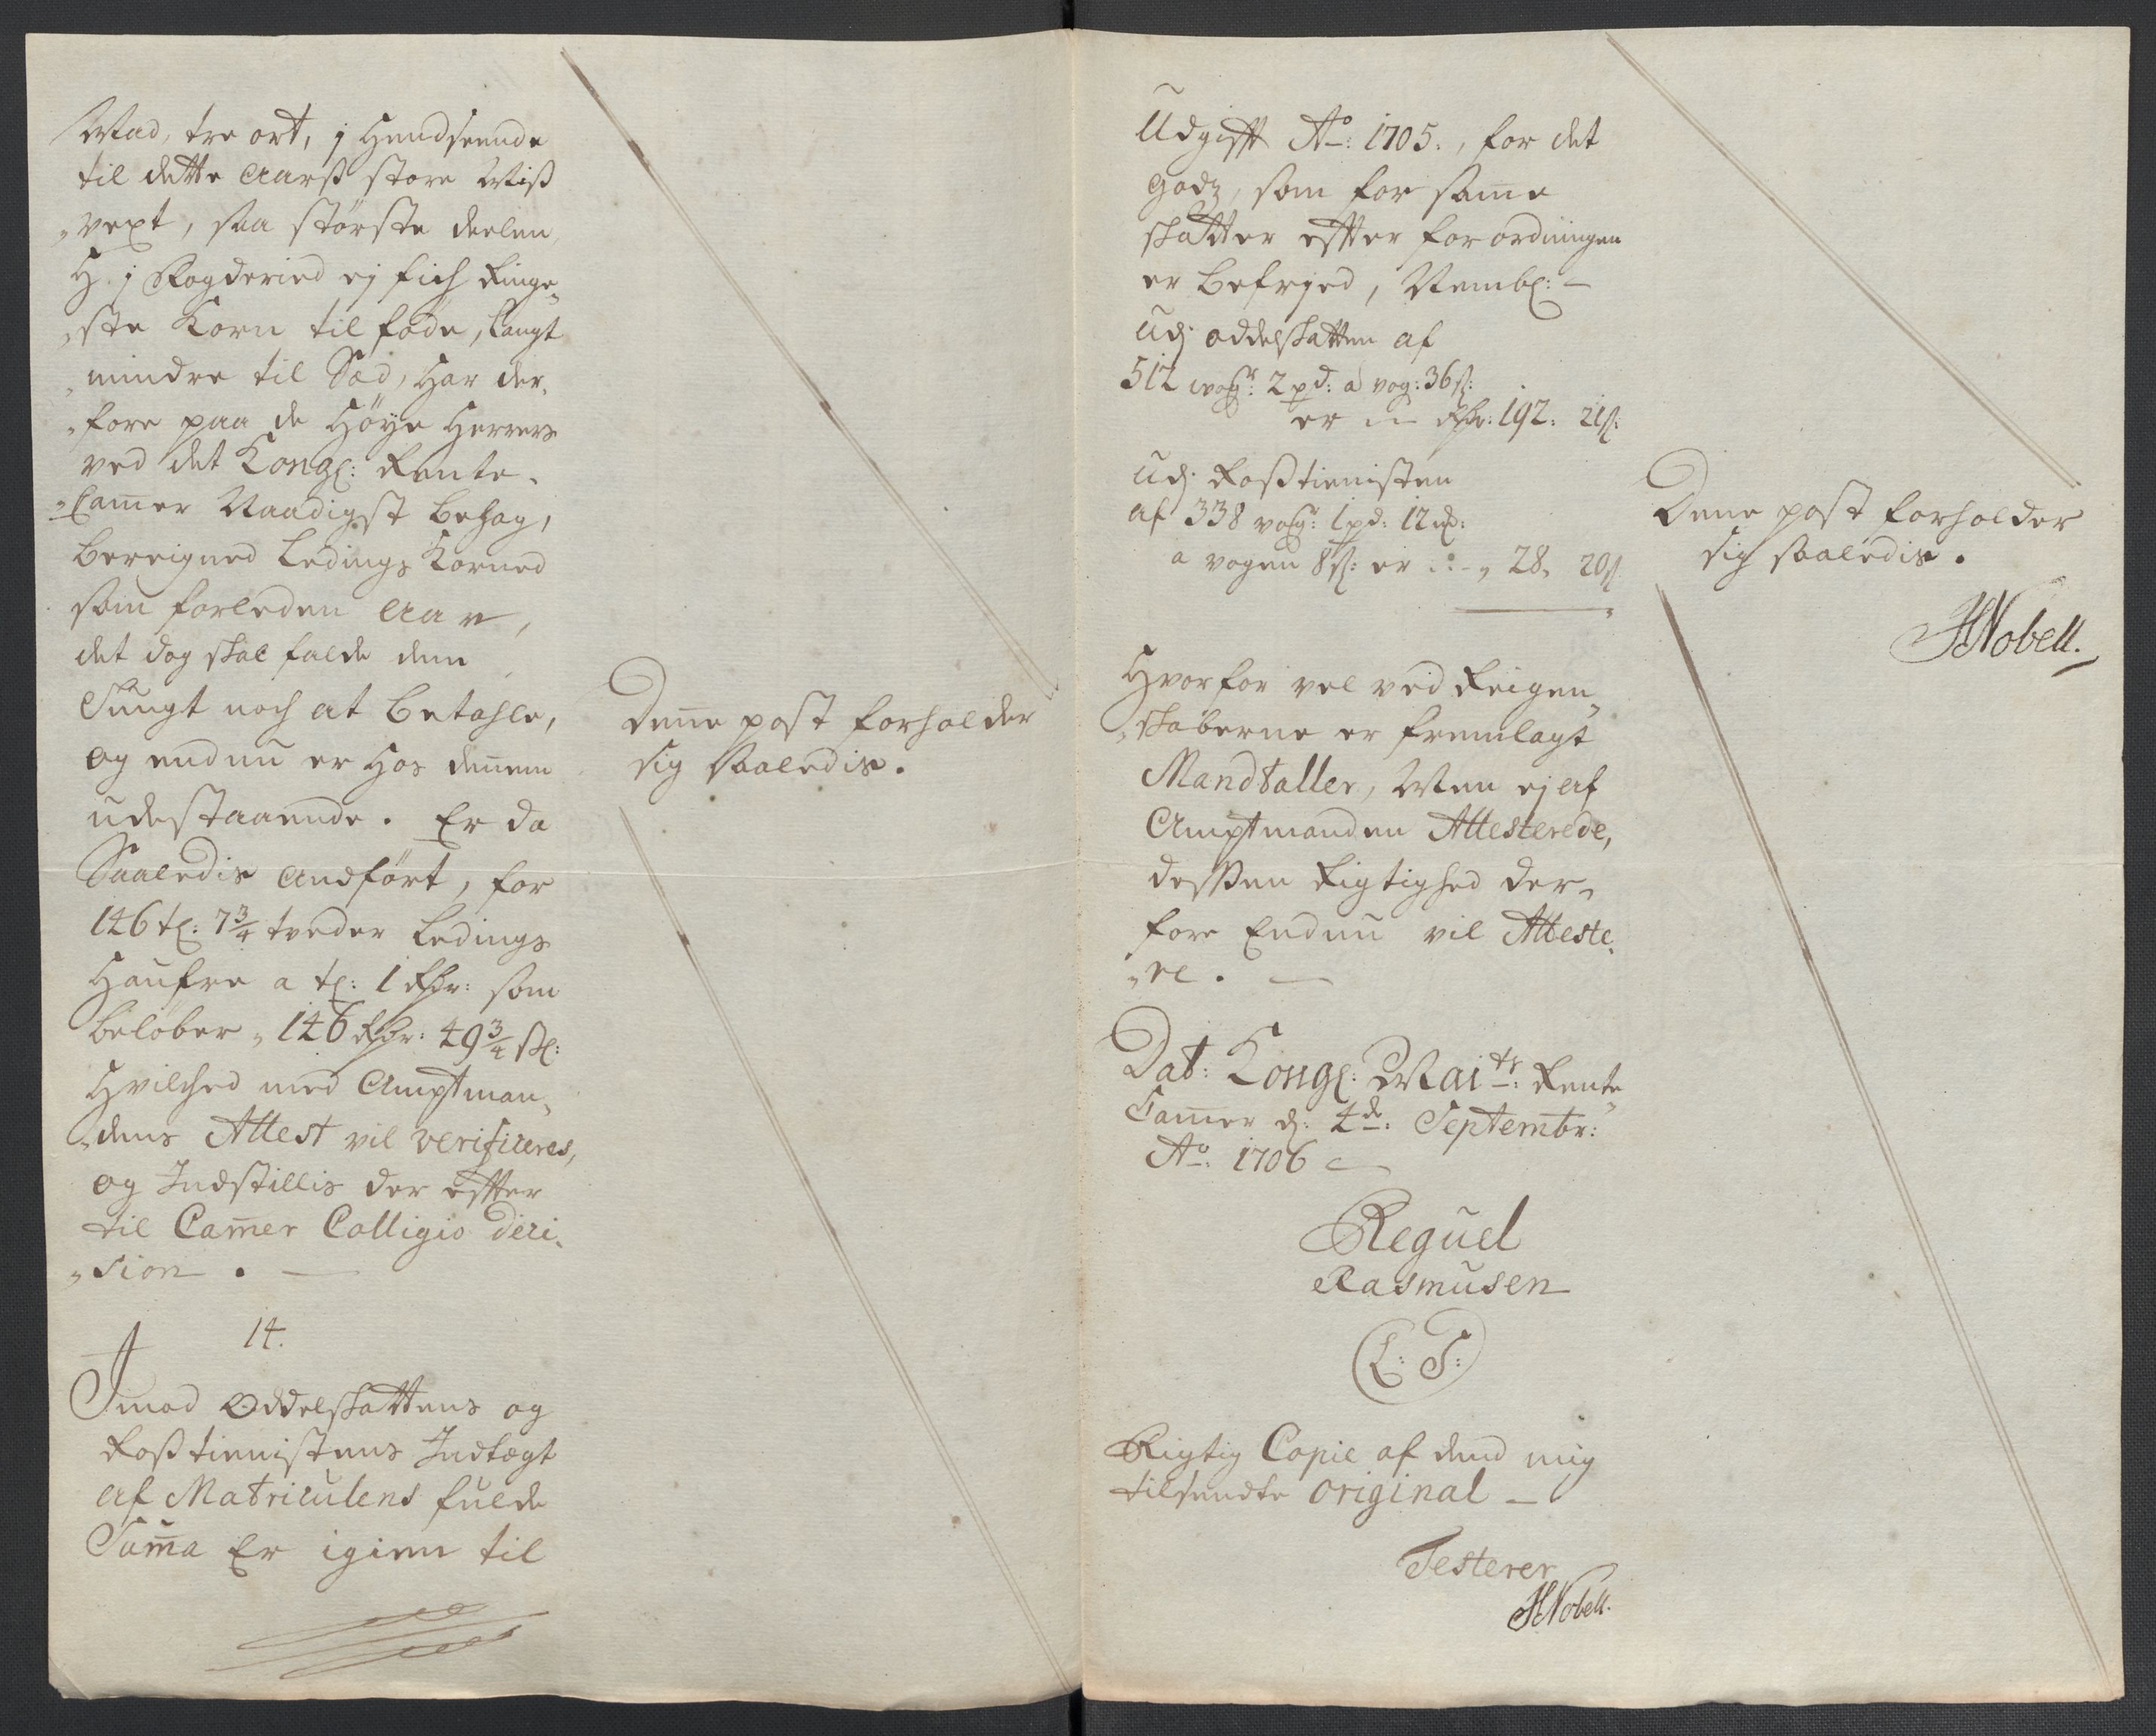 Mad, tre ort, i Hendseende
til dette Aarß store Miß
„vext, saa største deelen
H. i Fogderied ej fich Ringe„
„ste Korn til føde, langt
mindre til Sæd, Har der„
„fore paa de Høye Herrers
ved det Kongl: Rente„
„Camer Naadigst behag,
bereigned Ledings Korned
som forleden Aar,
det dog skal falde dem
Tungt noch at betahle,
og endnu er Hos dennem
udestaaende. Er da
Saaledis Andført, for
146 tl: 7 3/4 tveder Ledings
Haufre a tl: 1 Rdr: som
beløber „ 146 Rdr: 49 3/4 sl:
Hvilched med Amptman„
„dens Attest vil verificeres,
og Indstillis der effter
til Camer Colligio deci„
„sion. —
14.
Imod Oddelskattens og
Roßtienistens Indtægt
af Matriculens fulde
Suma Er igien til
Denne post forholder
sig saaledis.
Udgifft Ao: 1705., for det
godz, som for same
skatter effter forordningen
er befrjed, Nembl: —
Udj oddelskatten af
512 vogr: 2 pd: a vog: 36 sl:
er — Rdr: 192: 21 sl:
Udj Roßtienisten
af 338 vogr: 1 pd: 12 md:
a vogen 8 sl: er — „ 28„ 20 sl
Hvorfor vel ved Reigen„
„skaberne er fremlagt
Mandtaller, Men ej af
Amptmanden Attesterede,
deßen Rigtighed der„
fore Endnu vil Atteste„
„re. —
Dat: Kongl: Maits: Rente
Camer d: 4de: Septembr:
Ao: 1706 —
Reguel
Rasmusen
(L: S:)
Rigtig Copie af dend mig
tilsendte original —
Testerer
HNobell.
Denne post forholder
sig saaledis.
HNobell.